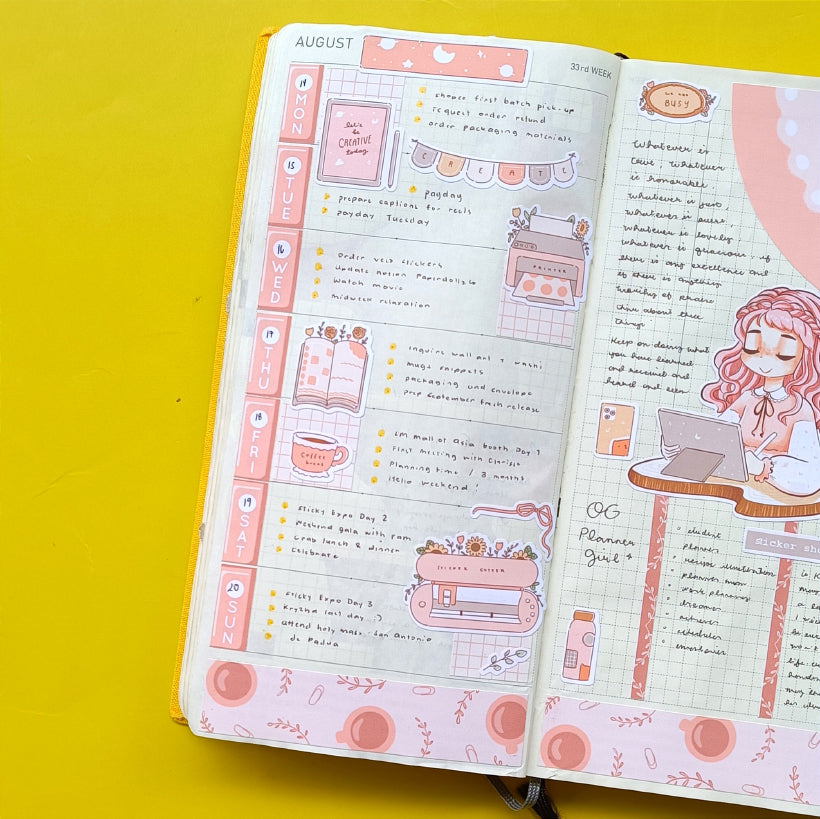 AUGUST
33rd WEEK
14
MON
shopee first batch pick-up
request order refund
order packaging materials
let's
be
CREATIVE
today
CREATE
15
TUE
payday
prepare captions for reels
payday Tuesday
16
WED
order vein stickers
update notion Paperdollzco
watch movie
midweek relaxation
PRINTER
17
THU
inquire wall art & washi
mugs snippets
packaging and envelope
prep September fresh release
18
FRI
Coffee
break
SM Mall of Asia booth Day 1
First meeting with
Planning time / 3 months
Hello weekend!
19
SAT
Sticky Expo Day 2
Weekend gala with fam
Grab lunch & dinner
celebrate
STICKER CUTTER
20
SUN
Sticky Expo Day 3
Kryzha last day :)
attend holy mass: San Antonio
de Padua
we got
BUSY
Whatever is
true, whatever
is honorable
whatever is just,
whatever is pure,
whatever is lovely
whatever is gracious if
there is any excellence and
if there is anything
worthy of praise
think about these
things.
Keep on doing what
you have learned
and received and
heard and seen
OG
Planner
girl +
student
planner
recipe illustration
planner mom
work planning
dreamer
achiever
scheduler
Sticker sho